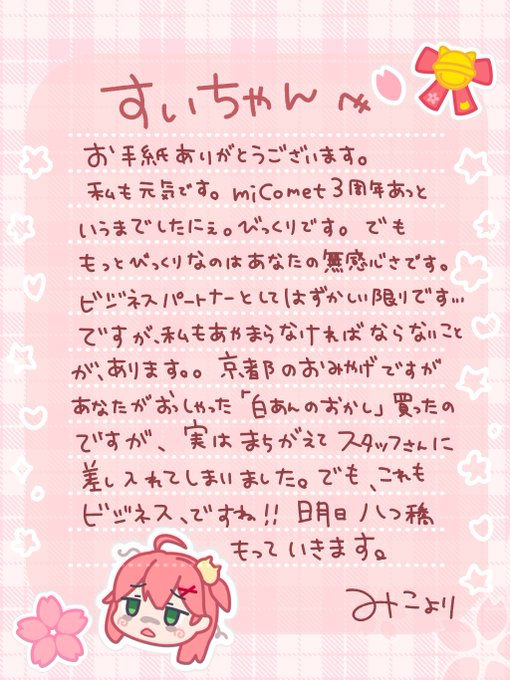 すいちゃんへ
お手紙ありがとうございます。
私も元気です。miComet3周年あっと
いうまでしたにぇ。びっくりです。でも
もっとびっくりなのはあなたの無感心さです。
ビジネスパートナーとしてはずかしい限りです…
ですが、私もあやまらなければならないこと
が、あります。。京都のおみやげですが
あなたがおっしゃった「白あんのおかし」買ったの
ですが、実はまちがえてスタッフさんに
差し入れてしまいました。でも、これも
ビジネス、ですね!!明日八つ橋
もっていきます。
みこより